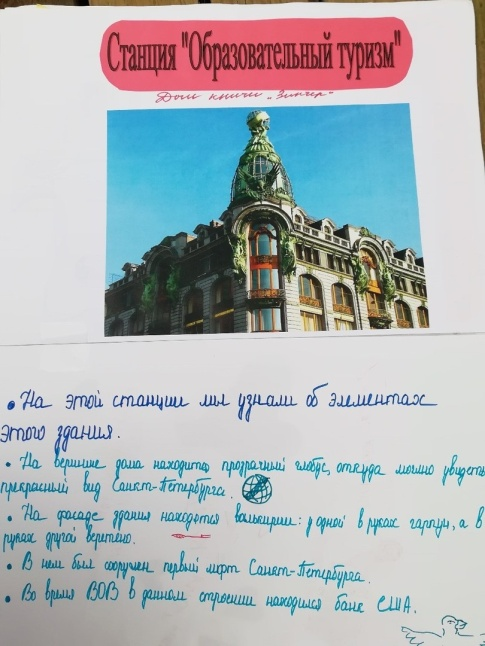 Станция "Образовательный туризм"
Дом книги „Зингер"
• На этой станции мы узнали об элементах
этого здания.
• На вершине дома находится прозрачный глобус, откуда можно увидеть
прекрасный вид Санкт-Петербурга.
• На фасаде здания находятся валькирии: у одной в руках гарпун, а в
руках другой веретено.
• В нем был сооружен первый лифт Санкт-Петербурга.
• Во время ВОВ в данном строении находился банк США.